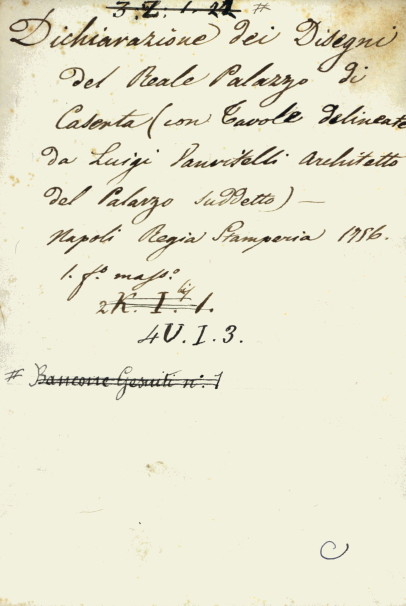 3. Z. 1. 22 #
Dichiarazione dei Disegni
del Reale Palazzo di
Caserta (con Tavole delineate
da Luigi Vanvitelli Architetto
del Palazzo suddetto) —
Napoli Regia Stamperia 1756.
1. fº. massº.
2 K. I. 1.
4 U. I. 3.
# Bancone Gesuiti nº. 1